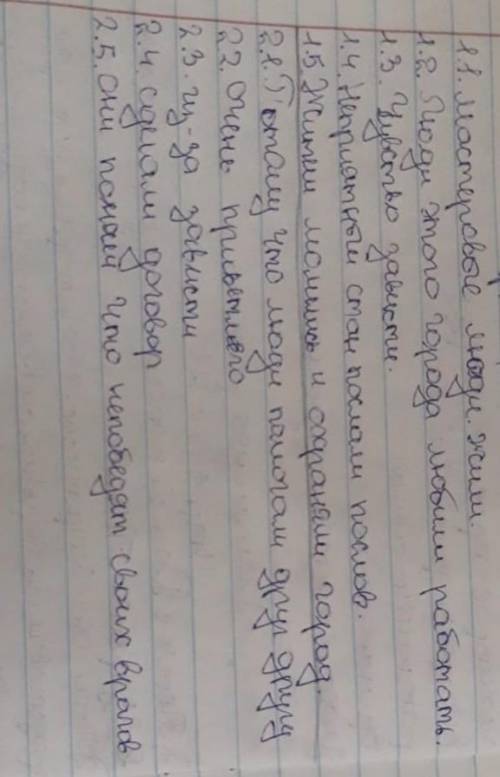 1.1. Мастеровые люди. жили.
1.2. Люди этого города любили работать.
1.3. Чувство зависти.
1.4. Неприятный стан послали послов.
1.5 Жители молились и охраняли город.
2.1. Потому что люди помогали друг другу
2.2. Очень приветливо
2.3. Из-за зависти
2.4. сделали договор
2.5. они поняли что непобедят своих врагов